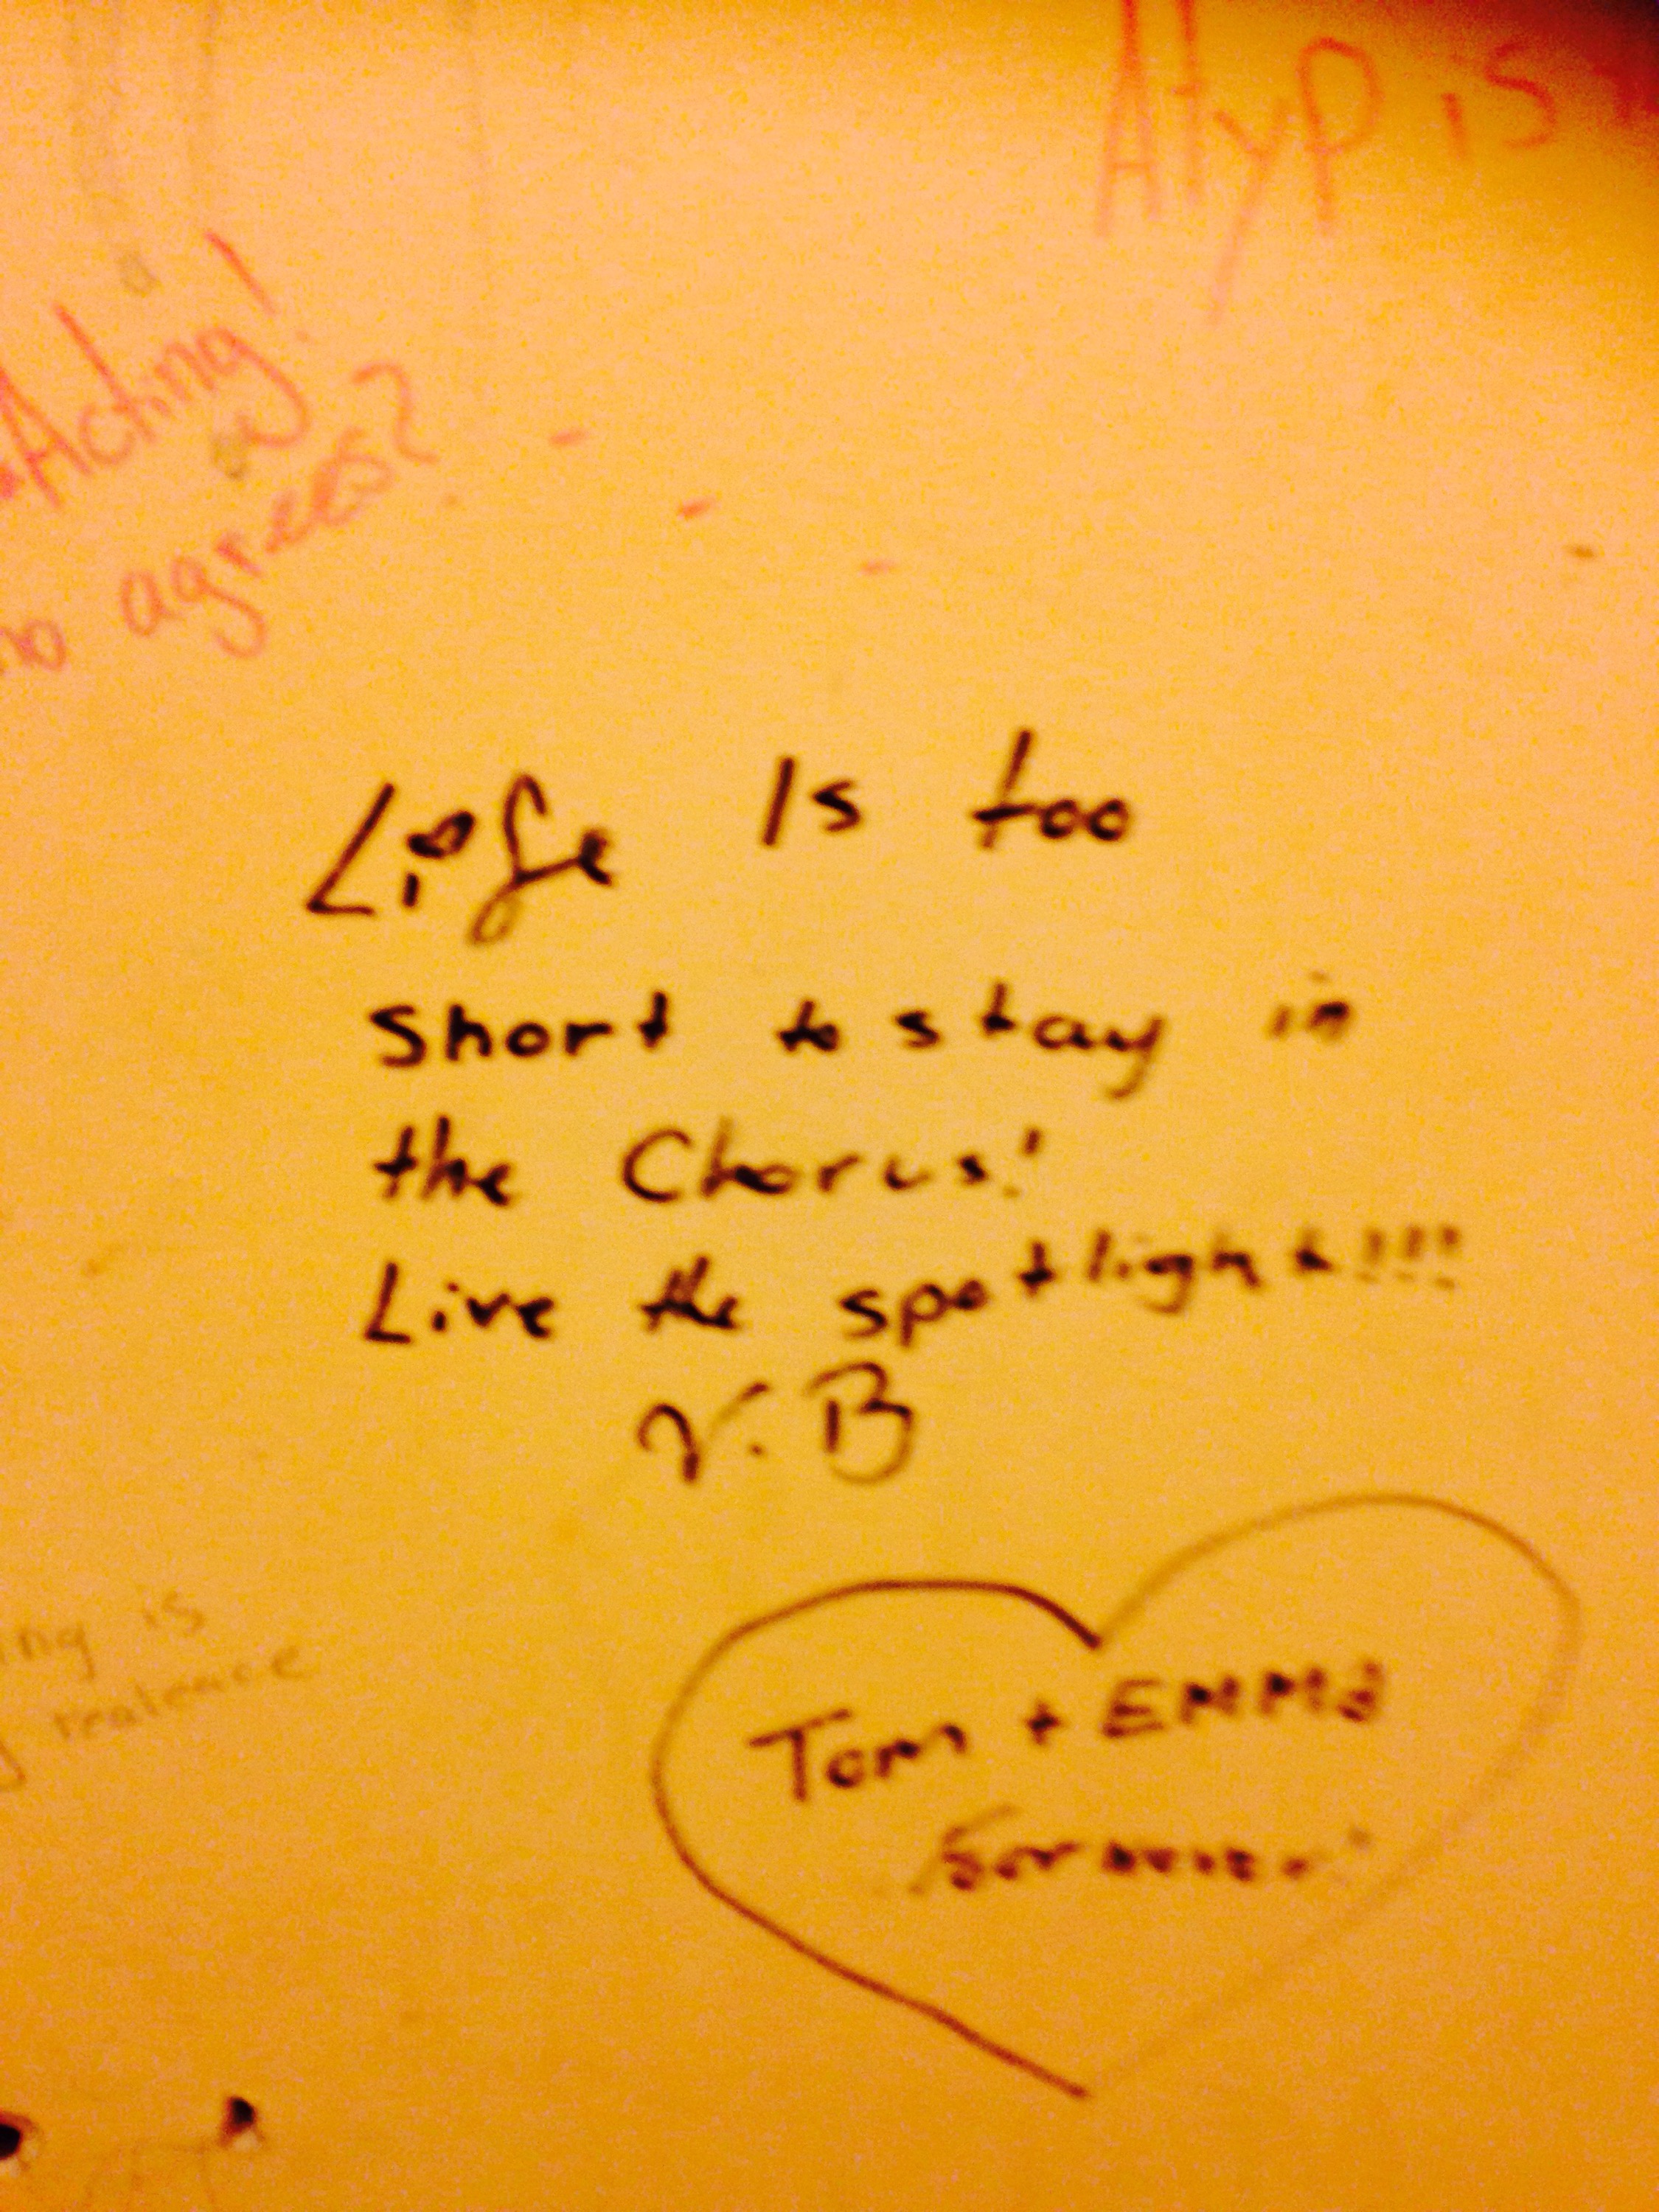 Atyp is
Acting!
agrees?
Life Is too
short to stay in
the Chorus!
Live the spotlight!!!
V.B
ing is
Tom + EMMa
forever